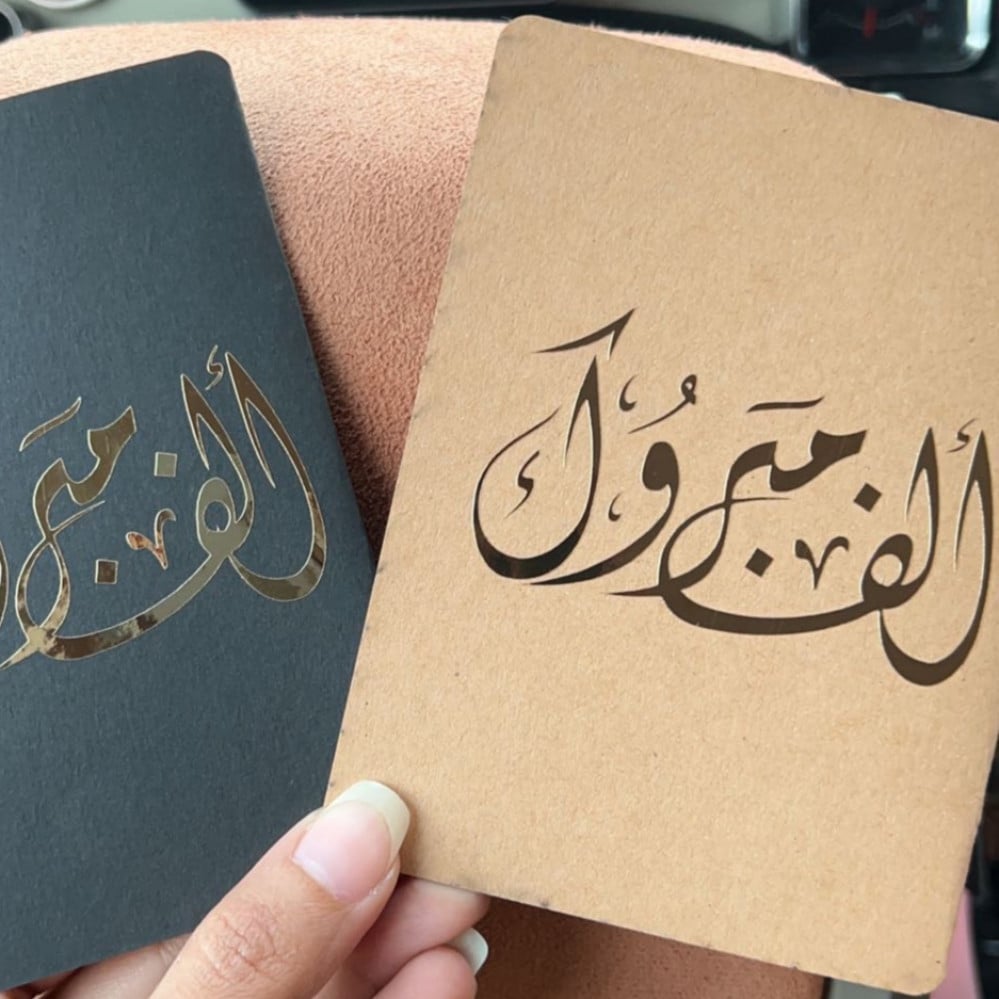 ألف مبروك
ألف مبر